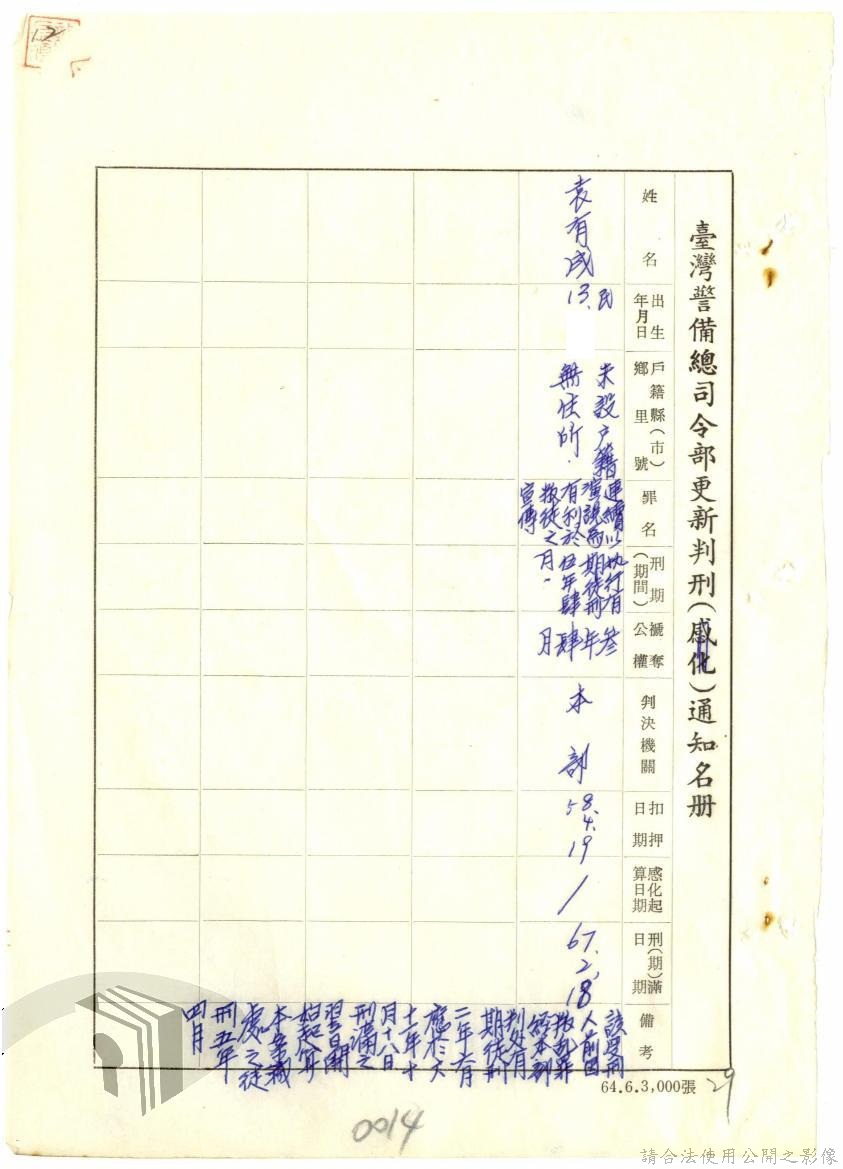 12
臺灣警備總司令部更新判刑(感化)通知名册
姓名
出生
年月日
戶籍縣(市)
鄉里號
罪名
刑期
(期間)
褫奪
公權
判決機關
扣押
日期
感化起
算日期
刑(期)滿
日期
備考
袁有成
民
13.
未設戶籍
無住所.
連續以
演說為
有利於
叛徒之
宣傳
執行有
期徒刑
伍年肆
月.
叁
年肆
月
本部
58.
4.
19
/
67.
2.
18
該受刑
人前因
叛亂罪
經本部
判處有
期徒刑
二年六月
應於六
十一年十
月十八日
刑滿之
翌日開
始起算
本案減
處之徒
刑五年
四月
64.6.3,000張
29
0014
請合法使用公開之影像